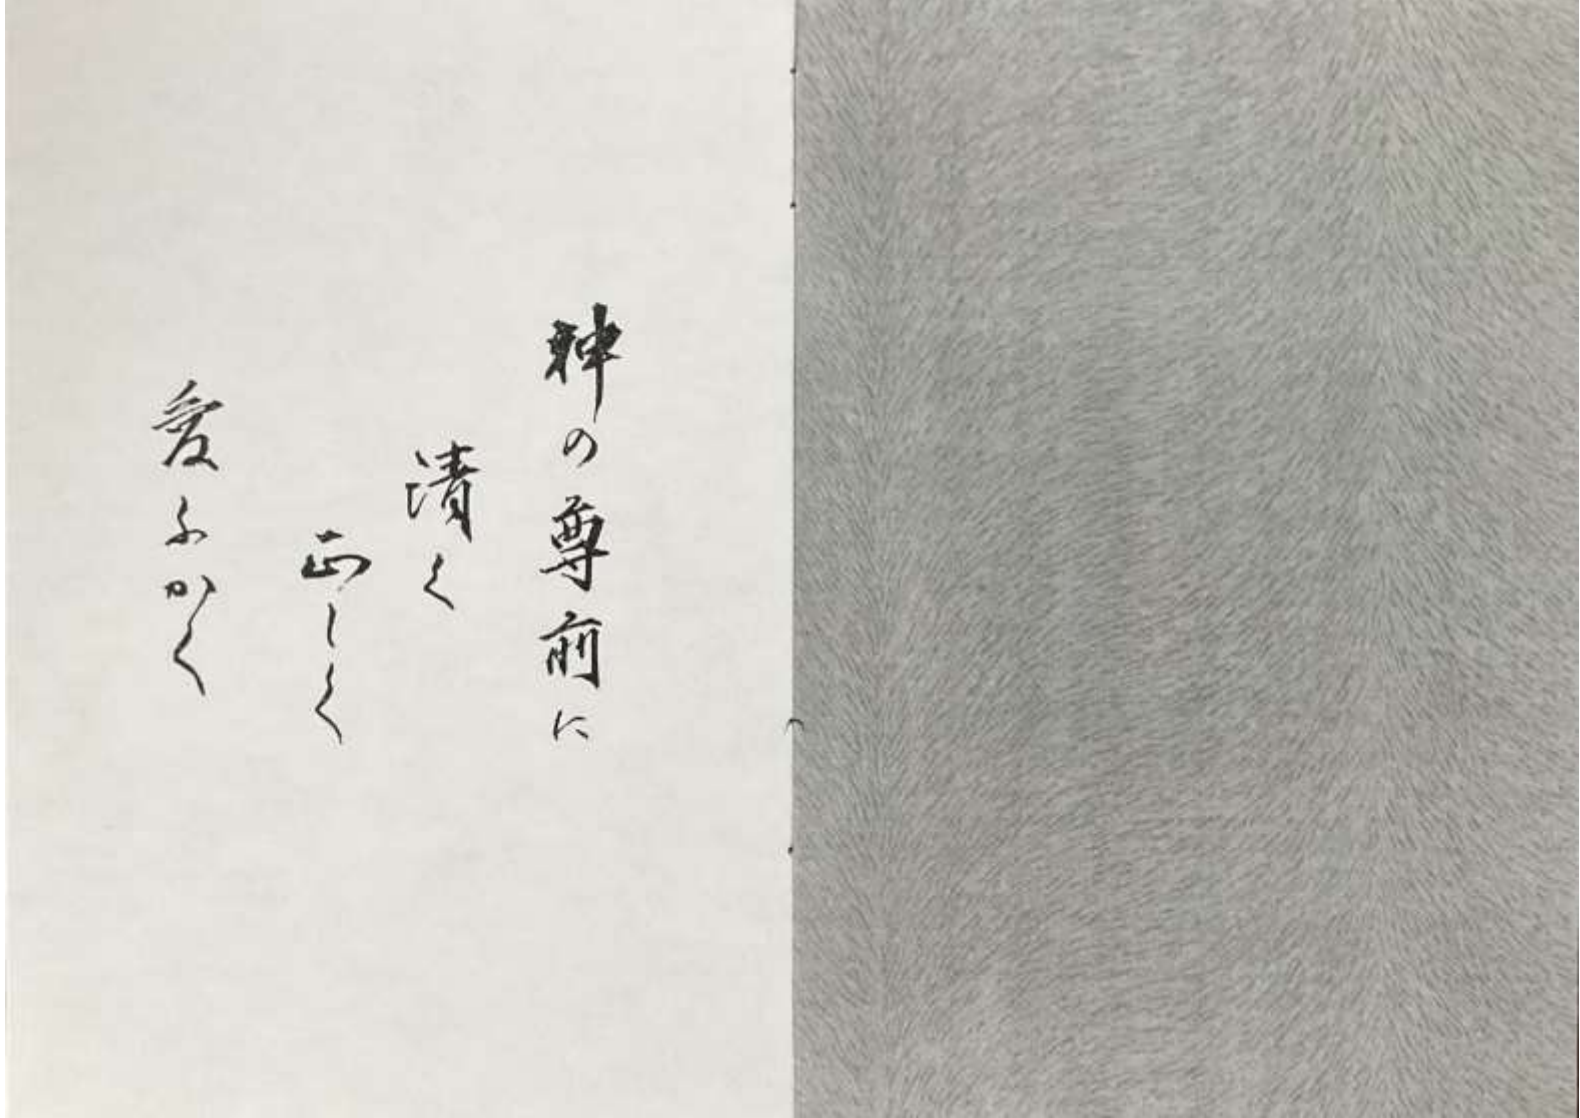 神の尊前に
清く
正しく
愛ふかく